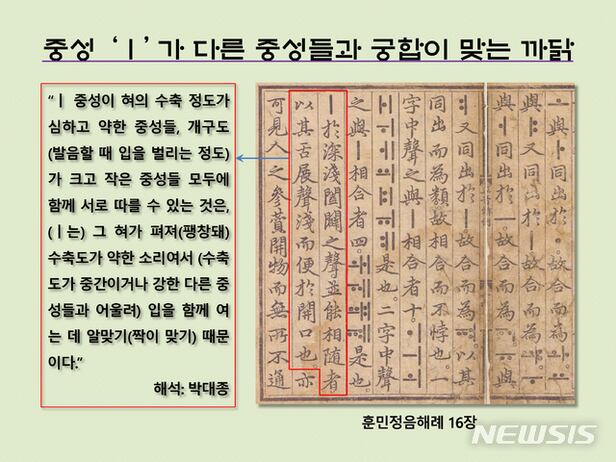 중성 ‘ㅣ’가 다른 중성들과 궁합이 맞는 까닭
“ㅣ 중성이 혀의 수축 정도가
심하고 약한 중성들, 개구도
(발음할 때 입을 벌리는 정도)
가 크고 작은 중성들 모두에
함께 서로 따를 수 있는 것은,
(ㅣ는) 그 혀가 펴져(팽창돼)
수축도가 약한 소리여서 (수축
도가 중간이거나 강한 다른 중
성들과 어울려) 입을 함께 여
는 데 알맞기(짝이 맞기) 때문
이다.”
해석: 박대종
ㅗ與ㅏ同出於ㆍ。故合而爲ㅘ。ㅛ
與ㅑ又同出於ㅣ。故合而爲ㆇ。ㅜ
與ㅓ同出於ㅡ。故合而爲ㅝ。ㅠ與
ㅕ又同出於ㅣ。故合而爲ㆊ。以其
同出而爲類。故相合而不悖也。一
字中聲之與ㅣ相合者十。ㆎㅢㅚ
ㅐㅟㅔㆉㅒㆌㅖ是也。二字中聲
之與ㅣ相合者四。ㅙㅞㆈㆋ是也。
ㅣ於深淺闔闢之聲。並能相隨者。
以其舌展聲淺而便於開口也。亦
可見人之參贊開物而無所不通
훈민정음해례 16장
NEWSIS